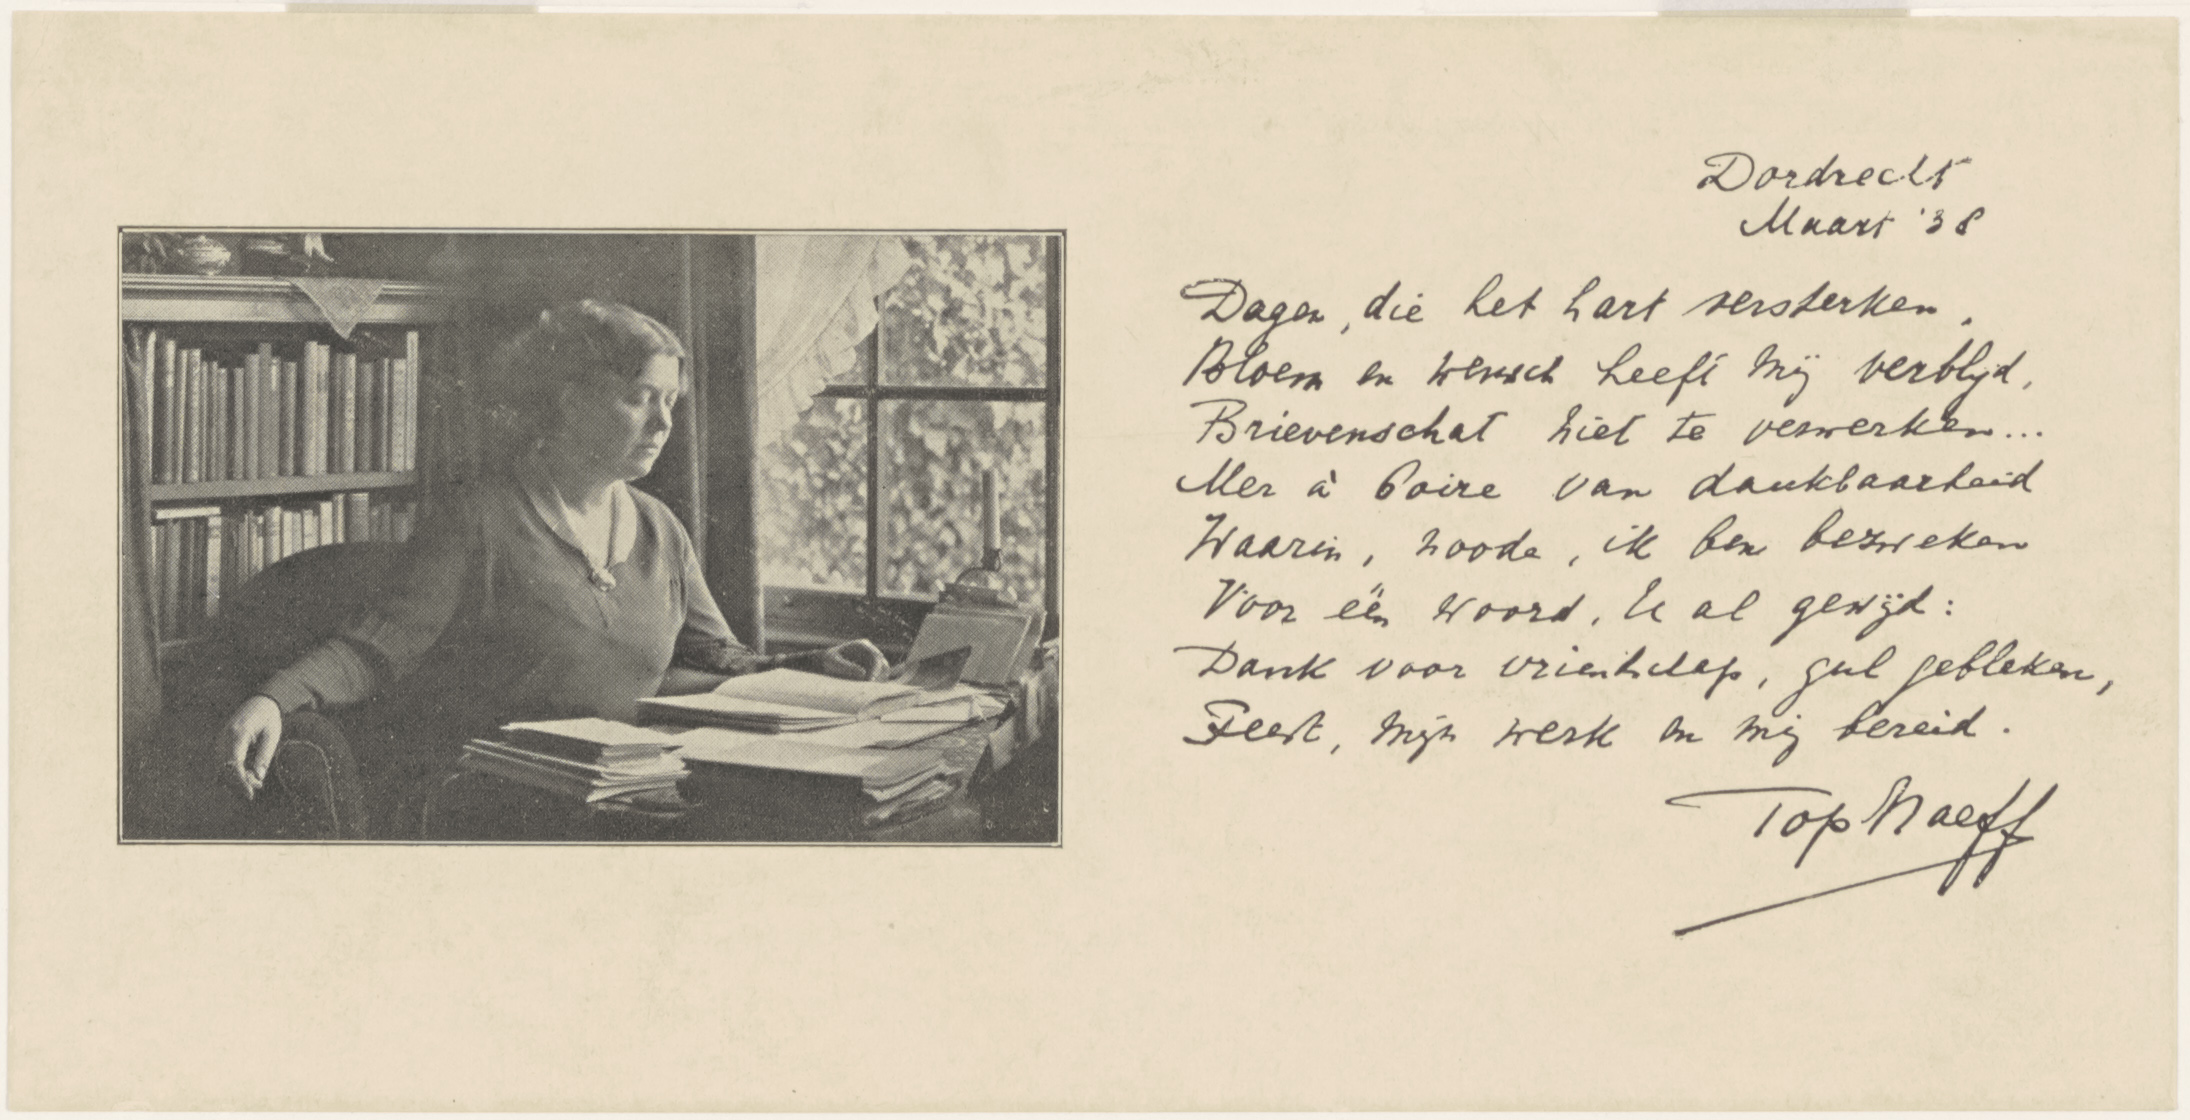 Dordrecht
Maart '38
Dagen, die het hart versterken,
Bloem en wensch heeft mij verblijd,
Brievenschat niet te verwerken...
Mer à boire van dankbaarheid
Waarin, noode, ik ben bezweken
Voor één woord, U al gewijd:
Dank voor vriendschap, gul gebleken,
Feest, mijn werk en mij bereid.
Top Naeff